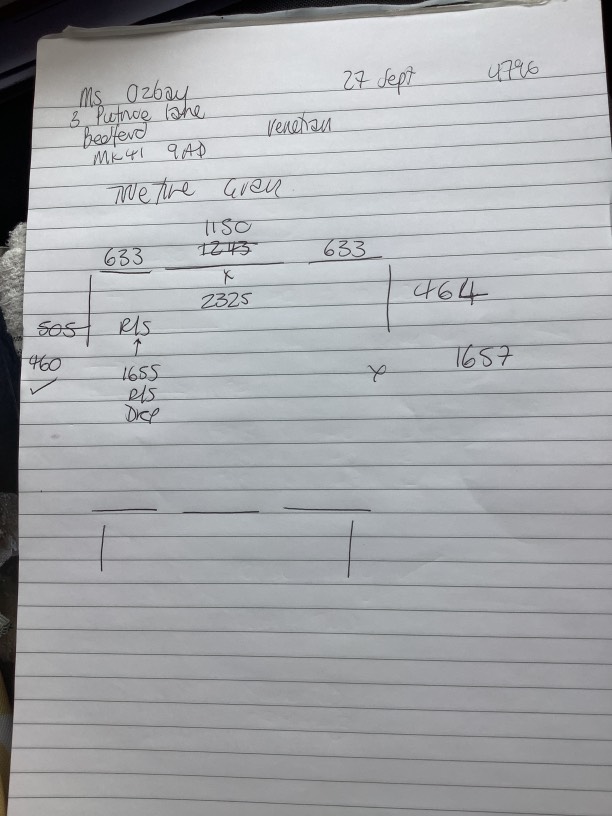 Ms Ozbay 27 Sept 4796
3 Putnoe lane
Bedford Venetian
MK41 9AD
1150
633 1243 633
x
2325 464
505 R/S
↑
460 1655 x 1657
✓ R/S
Drop